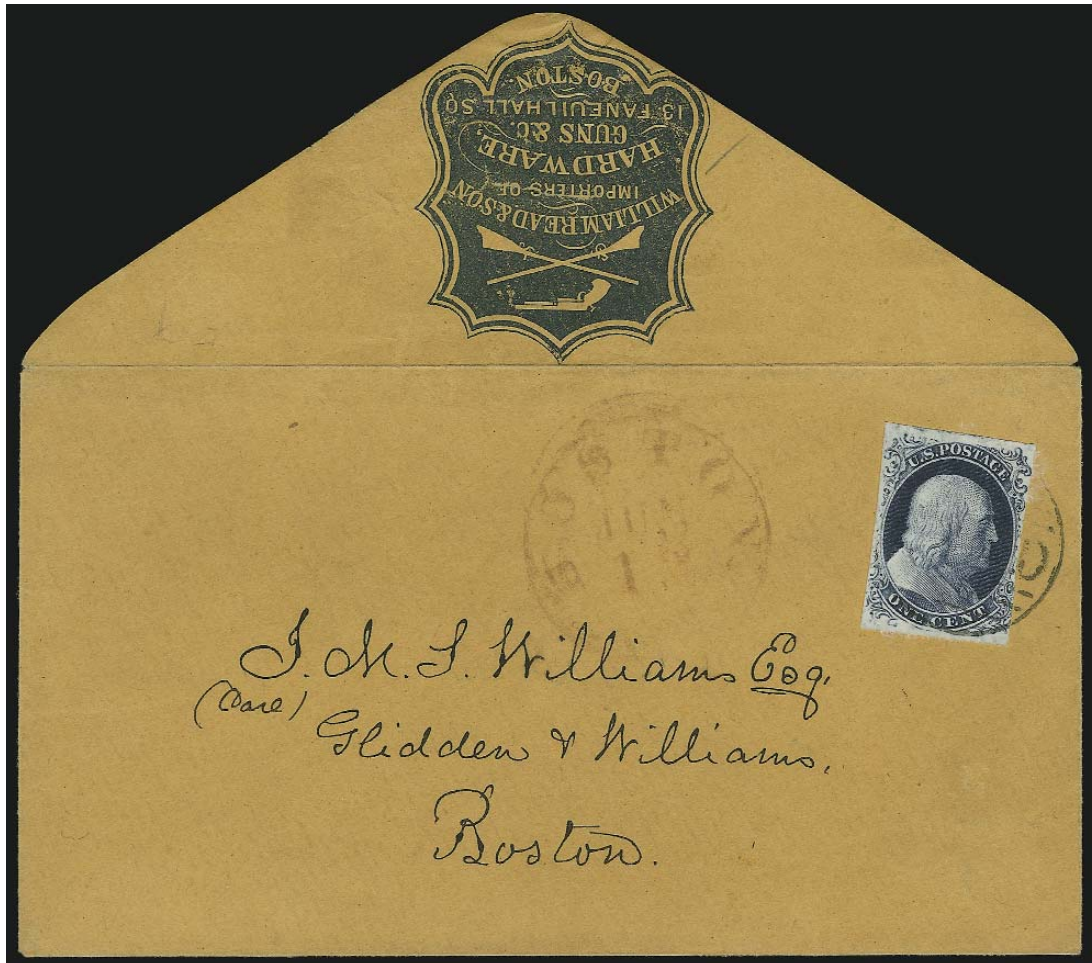 WILLIAM READ & SON
IMPORTERS OF
HARDWARE,
GUNS &C.
13 FANEUIL HALL SQ
BOSTON.
BOSTON
1
U.S. POSTAGE
ONE CENT
J. M. S. Williams Esq.
(Care)
Glidden & Williams,
Boston.